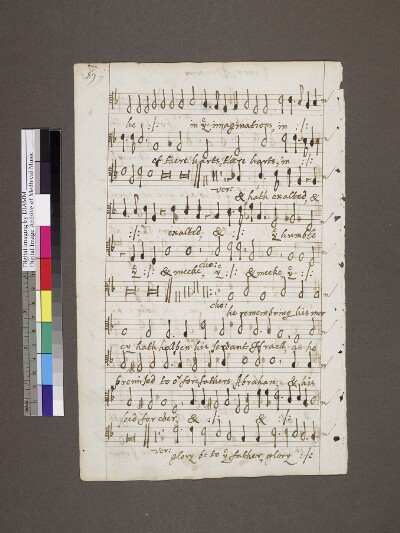 he :/: in yͤ imagination, in :/:
of there harts, there harts, in :/:
ver:
& hath exalted, &
:/: exalted, & :/: yͤ humble
yͤ :/: & meeke, yͤ :/: & meeke, yͤ :/:
cho:
cho: he remembring his mer
cy hath holpen his servant Israel, as he
promised to oͬ forefathers Abraham, & his
seed for ever, & :/: & :/:
ver:
glory be to yͤ father, glory :/:
Digital Imaging by DIAMM
Digital Image Archive of Medieval Music